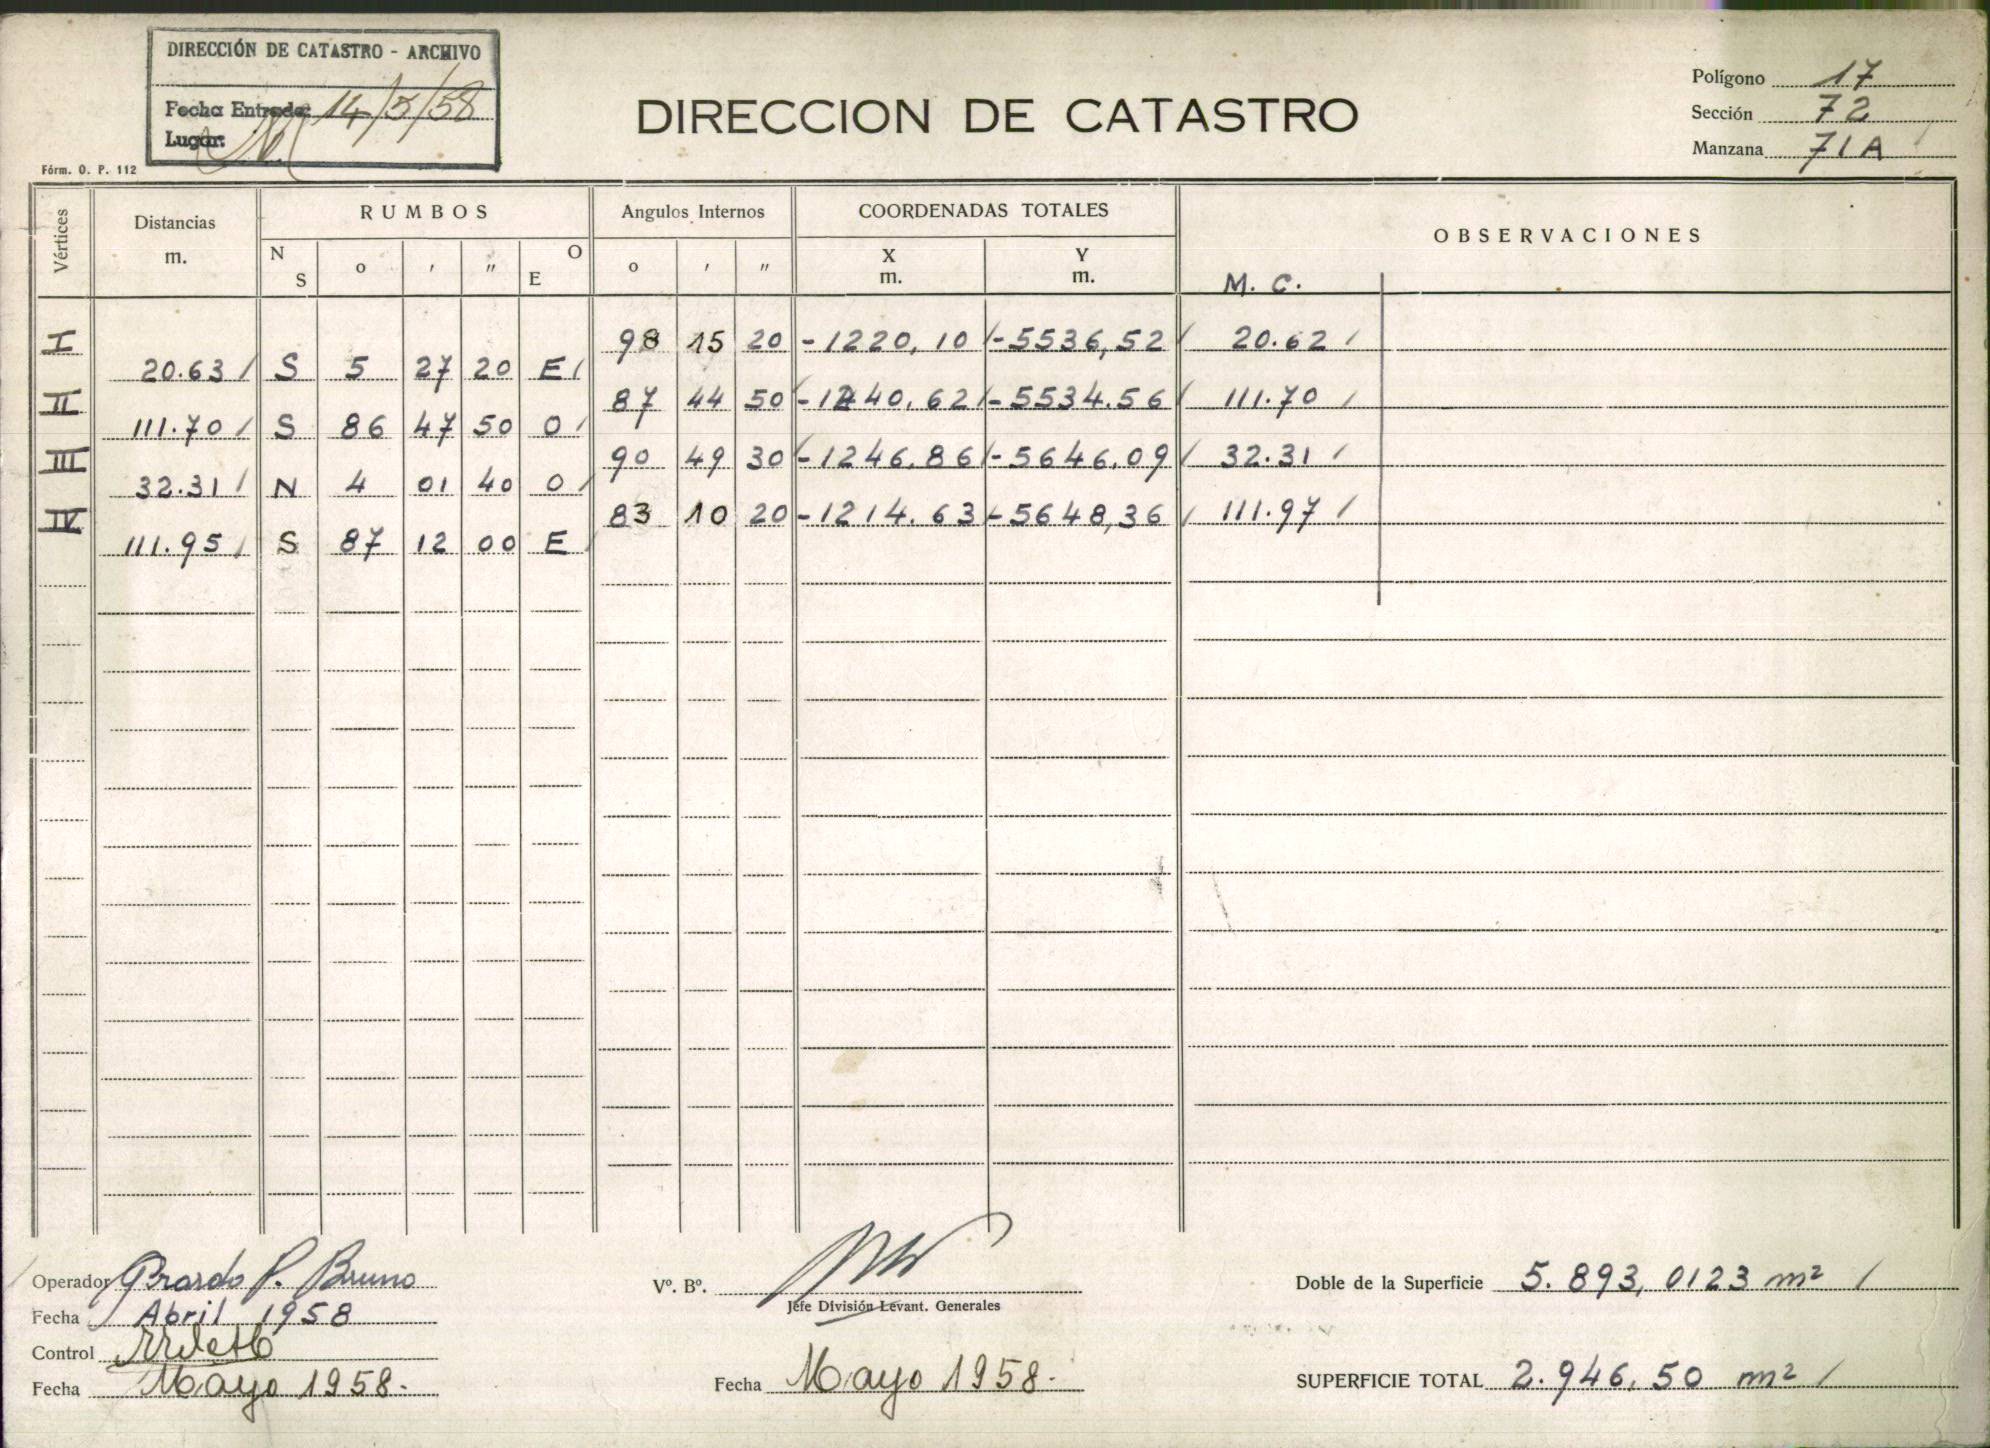 DIRECCIÓN DE CATASTRO - ARCHIVO
Fecha Entrada: 14/5/58
Lugar:
Fórm. O. P. 112
DIRECCION DE CATASTRO
Polígono 17
Sección 72
Manzana 71A
Vértices Distancias m. RUMBOS Angulos Internos COORDENADAS TOTALES OBSERVACIONES
N S o ' " O E o ' " X m. Y m. M. C.
I 98 15 20 -1220,10 -5536,52 20.62
20.63 S 5 27 20 E
II 87 44 50 -1240,62 -5534.56 111.70
111.70 S 86 47 50 O
III 90 49 30 -1246,86 -5646,09 32.31
32.31 N 4 01 40 O
IV 83 10 20 -1214.63 -5648,36 111.97
111.95 S 87 12 00 E
Operador Gerardo P. Bruno
Fecha Abril 1958
Control
Fecha Mayo 1958.
Vº. Bº.
Jefe División Levant. Generales
Fecha Mayo 1958.
Doble de la Superficie 5.893,0123 m²
SUPERFICIE TOTAL 2.946,50 m²